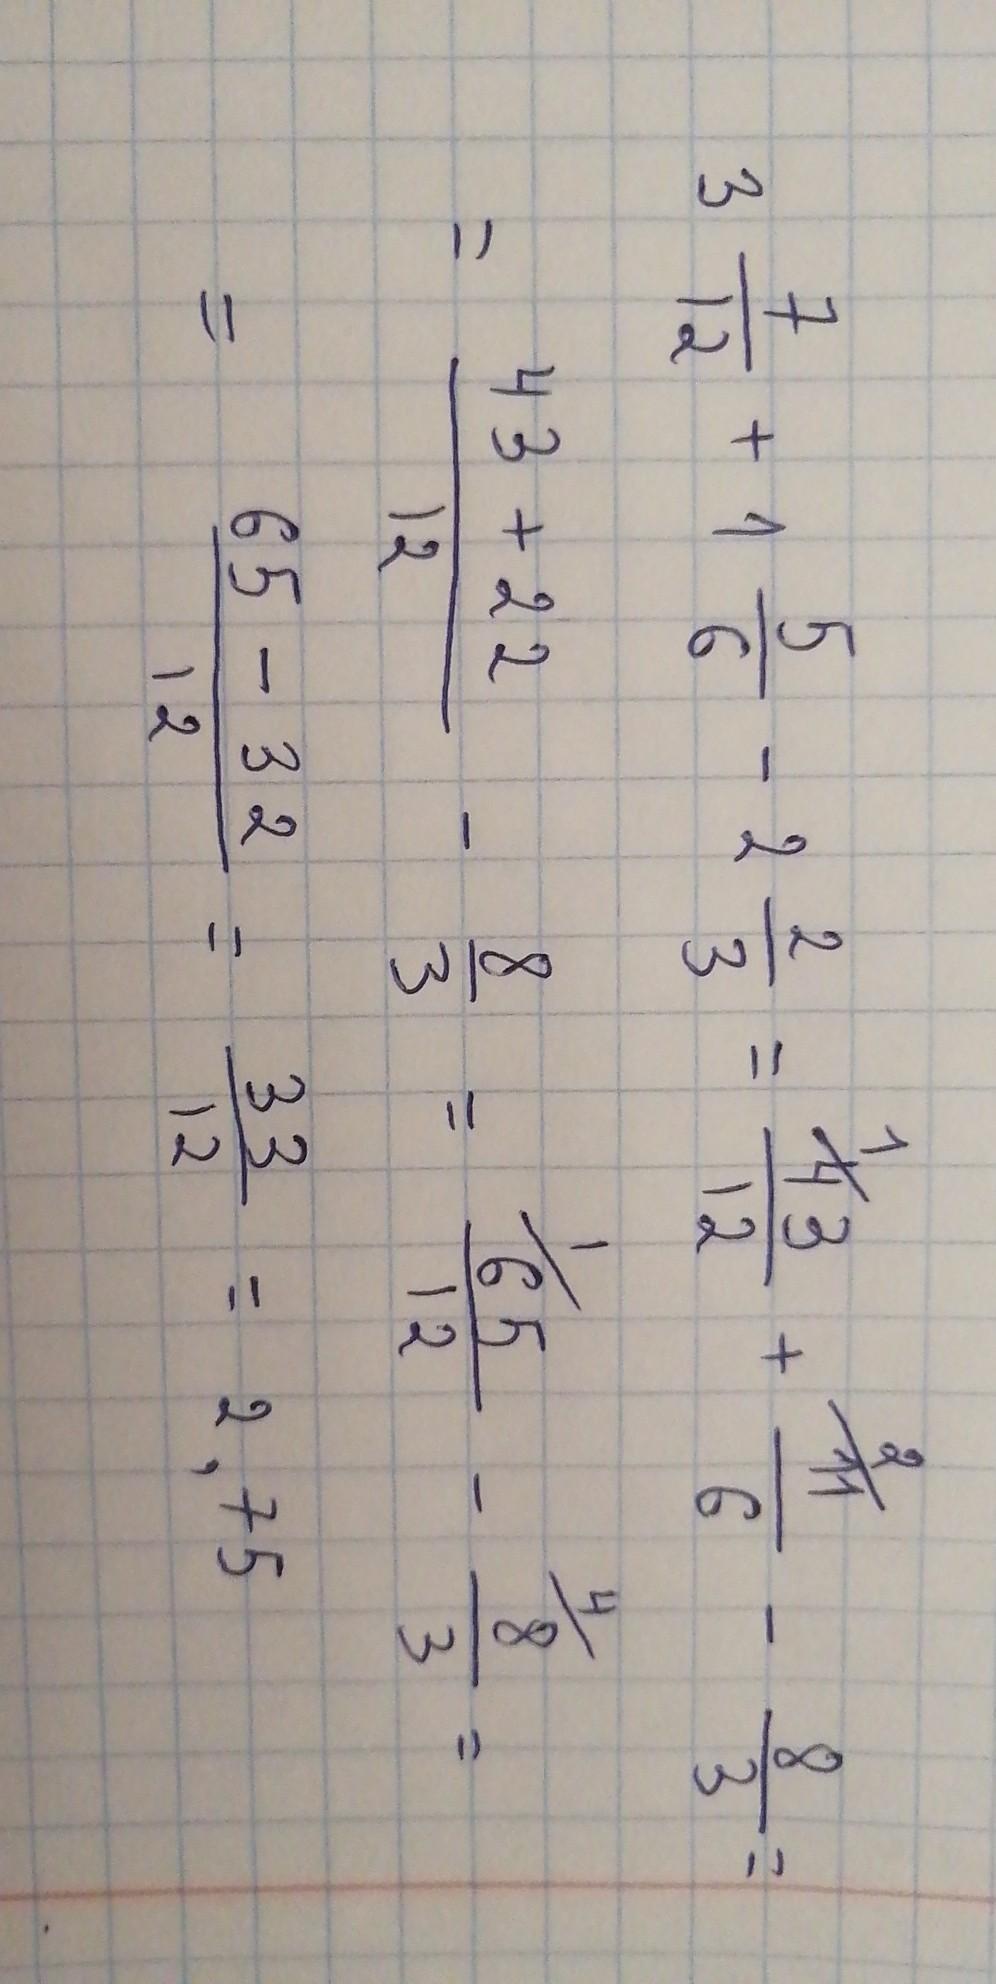 3 7/12 + 1 5/6 - 2 2/3 = 1/ 43/12 + 2/ 11/6 - 8/3 =
= 43 + 22/12 - 8/3 = 1/ 65/12 - 4/ 8/3 =
= 65 - 32/12 = 33/12 = 2,75